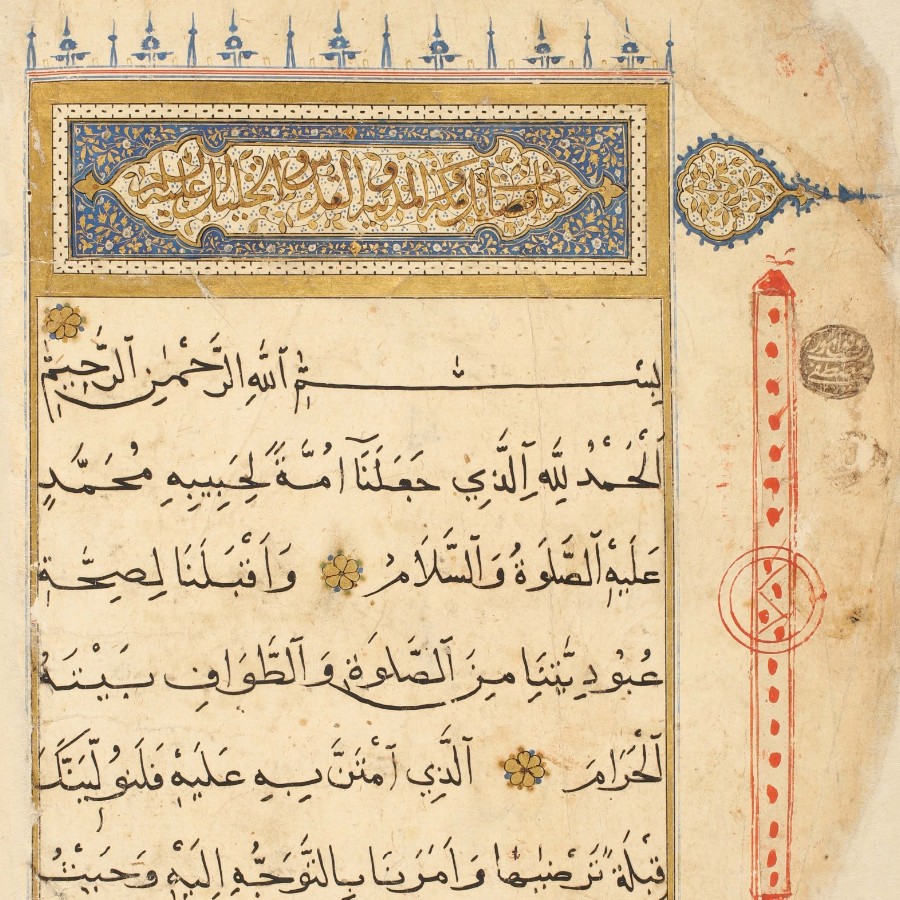 كتاب فضائل مكة والمدينة والقدس والخليل
بِسْمِ اللهِ الرَّحْمٰنِ الرَّحِيمِ
اَلْحَمْدُ لِلّٰهِ الَّذِي جَعَلَنَا اُمَّةً لِحَبِيبِهِ مُحَمَّدٍ
عَلَيْهِ الصَّلَوةُ وَالسَّلَامُ وَاَقْبَلَنَا لِصِحَّةِ
عُبُودِيَّتِنَا مِنَ الصَّلَوةِ وَالطَّوَافِ بَيْتَهُ
الْحَرَامَ الَّذِي امْتَنَّ بِهِ عَلَيْهِ فَلَنُوَلِّيَنَّكَ
قِبْلَةً تَرْضٰيهَا وَاَمَرَنَا بِالتَّوَجُّهِ اِلَيْهِ وَحَيْثُ